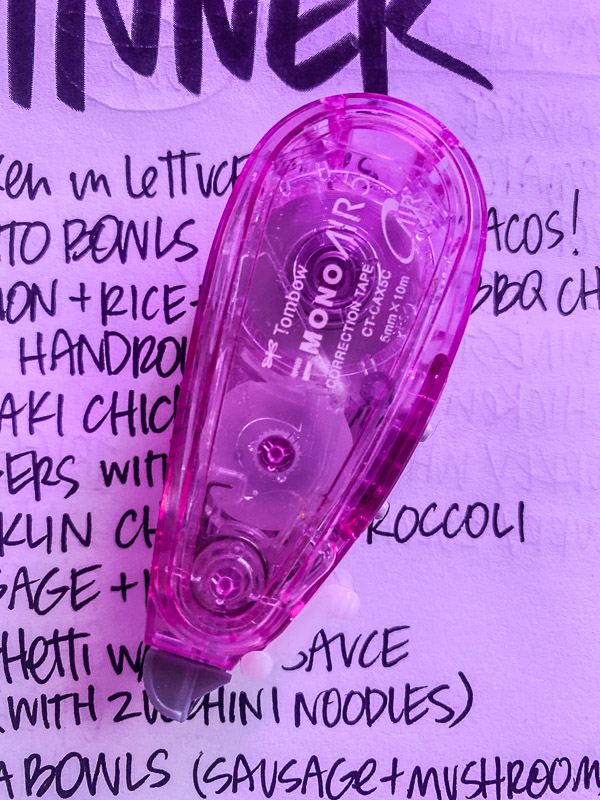 INNER
ken in lettuce
TO BOWLS
ACOS!
MON + RICE
BBQ CH
HANDRO
AKI CHIC
ERS WITH
KLIN CH
ROCCOLI
SAGE +
HETTI W
SAUCE
(WITH ZUCCHINI NOODLES)
A BOWLS (SAUSAGE + MUSHROOM
Tombow
MONO AIR 5
CORRECTION TAPE
CT-CAX5C
5mm × 10m
AIR